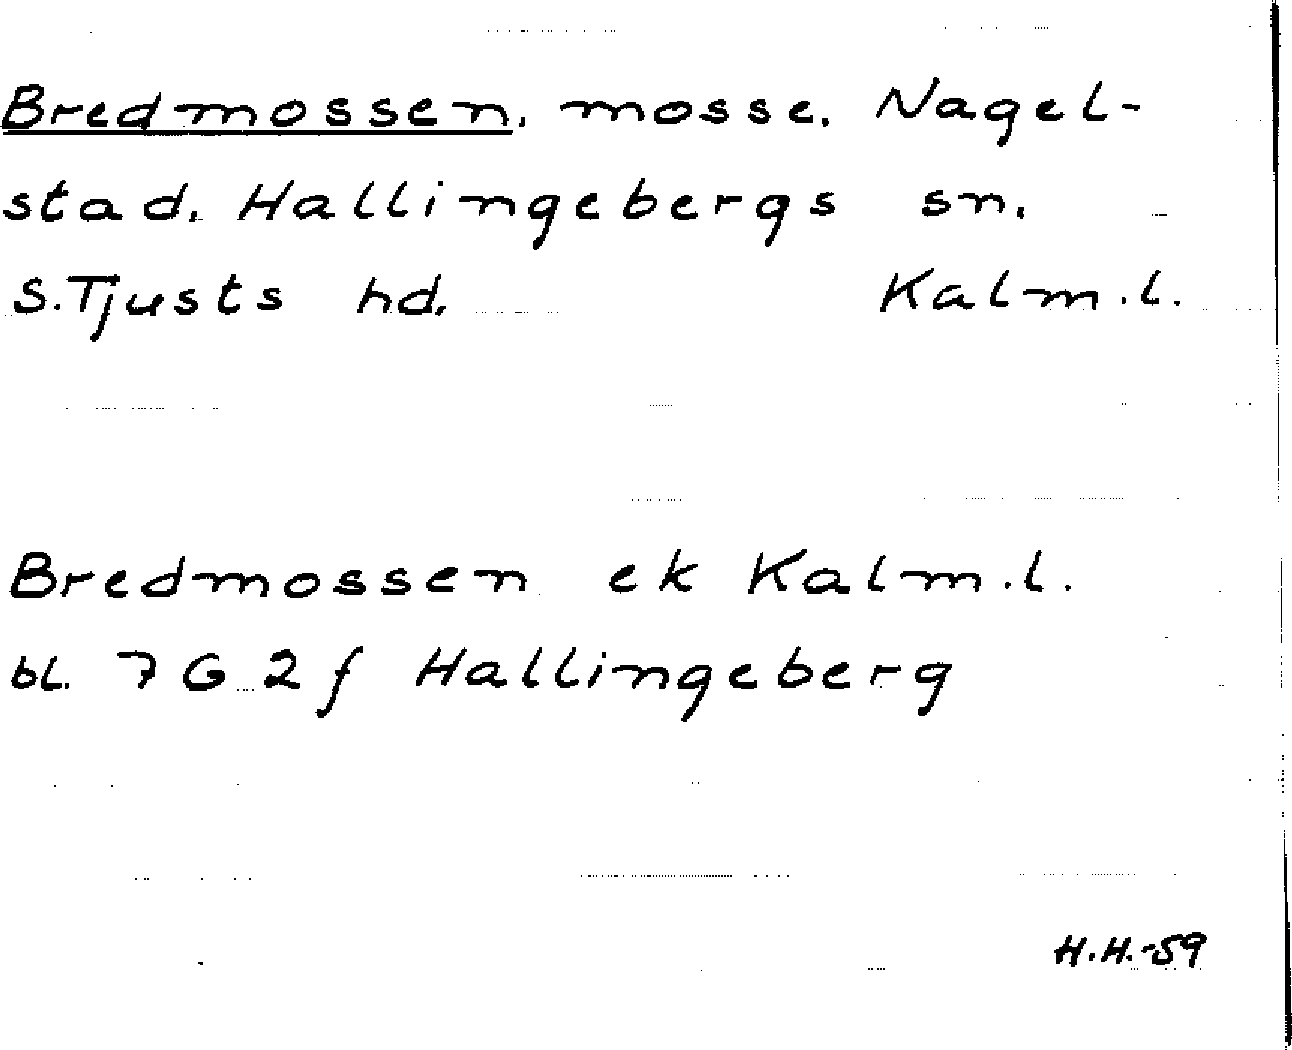 Bredmossen, mosse, Nagel-
stad, Hallingebergs sn,
S.Tjusts hd, Kalm.l.
Bredmossen ek Kalm.l.
bl. 7 G 2 f Hallingeberg
H.H.-59